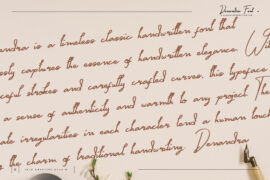 Denandra Font
andra is a timeless classic handwritten font that
ssly captures the essence of handwritten elegance. Wit
ceful strokes and carefully crafted curves, this typeface
a sense of authenticity and warmth to any project. The
tle irregularities in each character lend a human touch
g the charm of traditional handwriting. Denandra